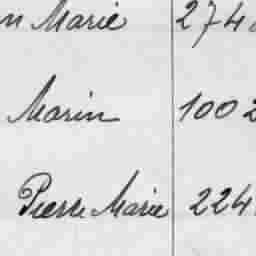 n Marie 274
Marin 1002
Pierre Marie 224